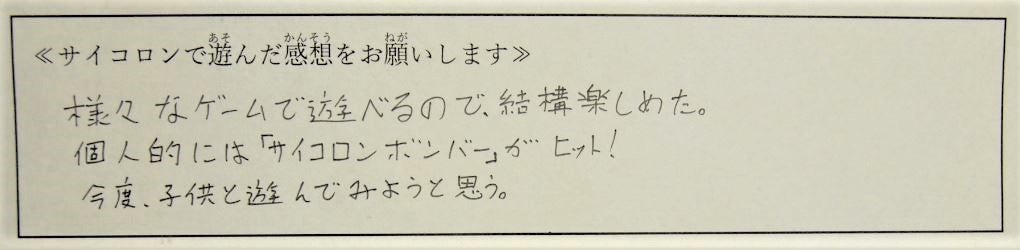 ≪サイコロンで遊んだ感想をお願いします≫
様々なゲームで遊べるので、結構楽しめた。
個人的には「サイコロンボンバー」がヒット!
今度、子供と遊んでみようと思う。